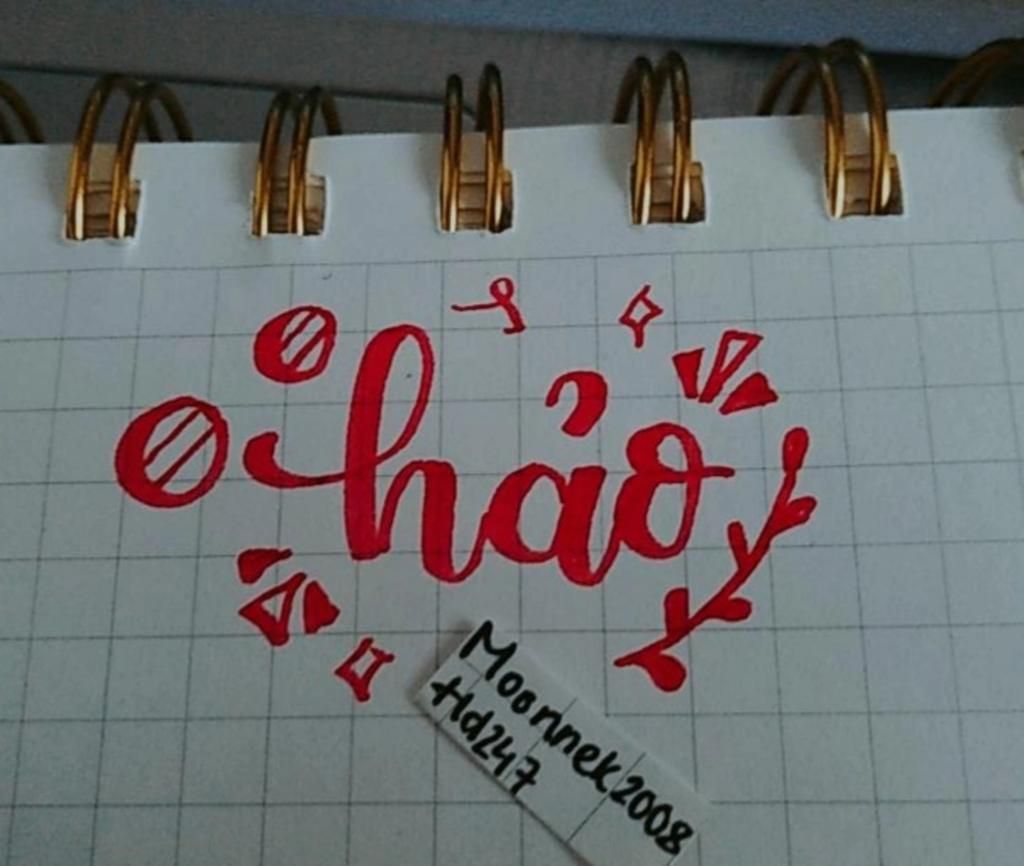 hảo
Moonnek2008
Hd247